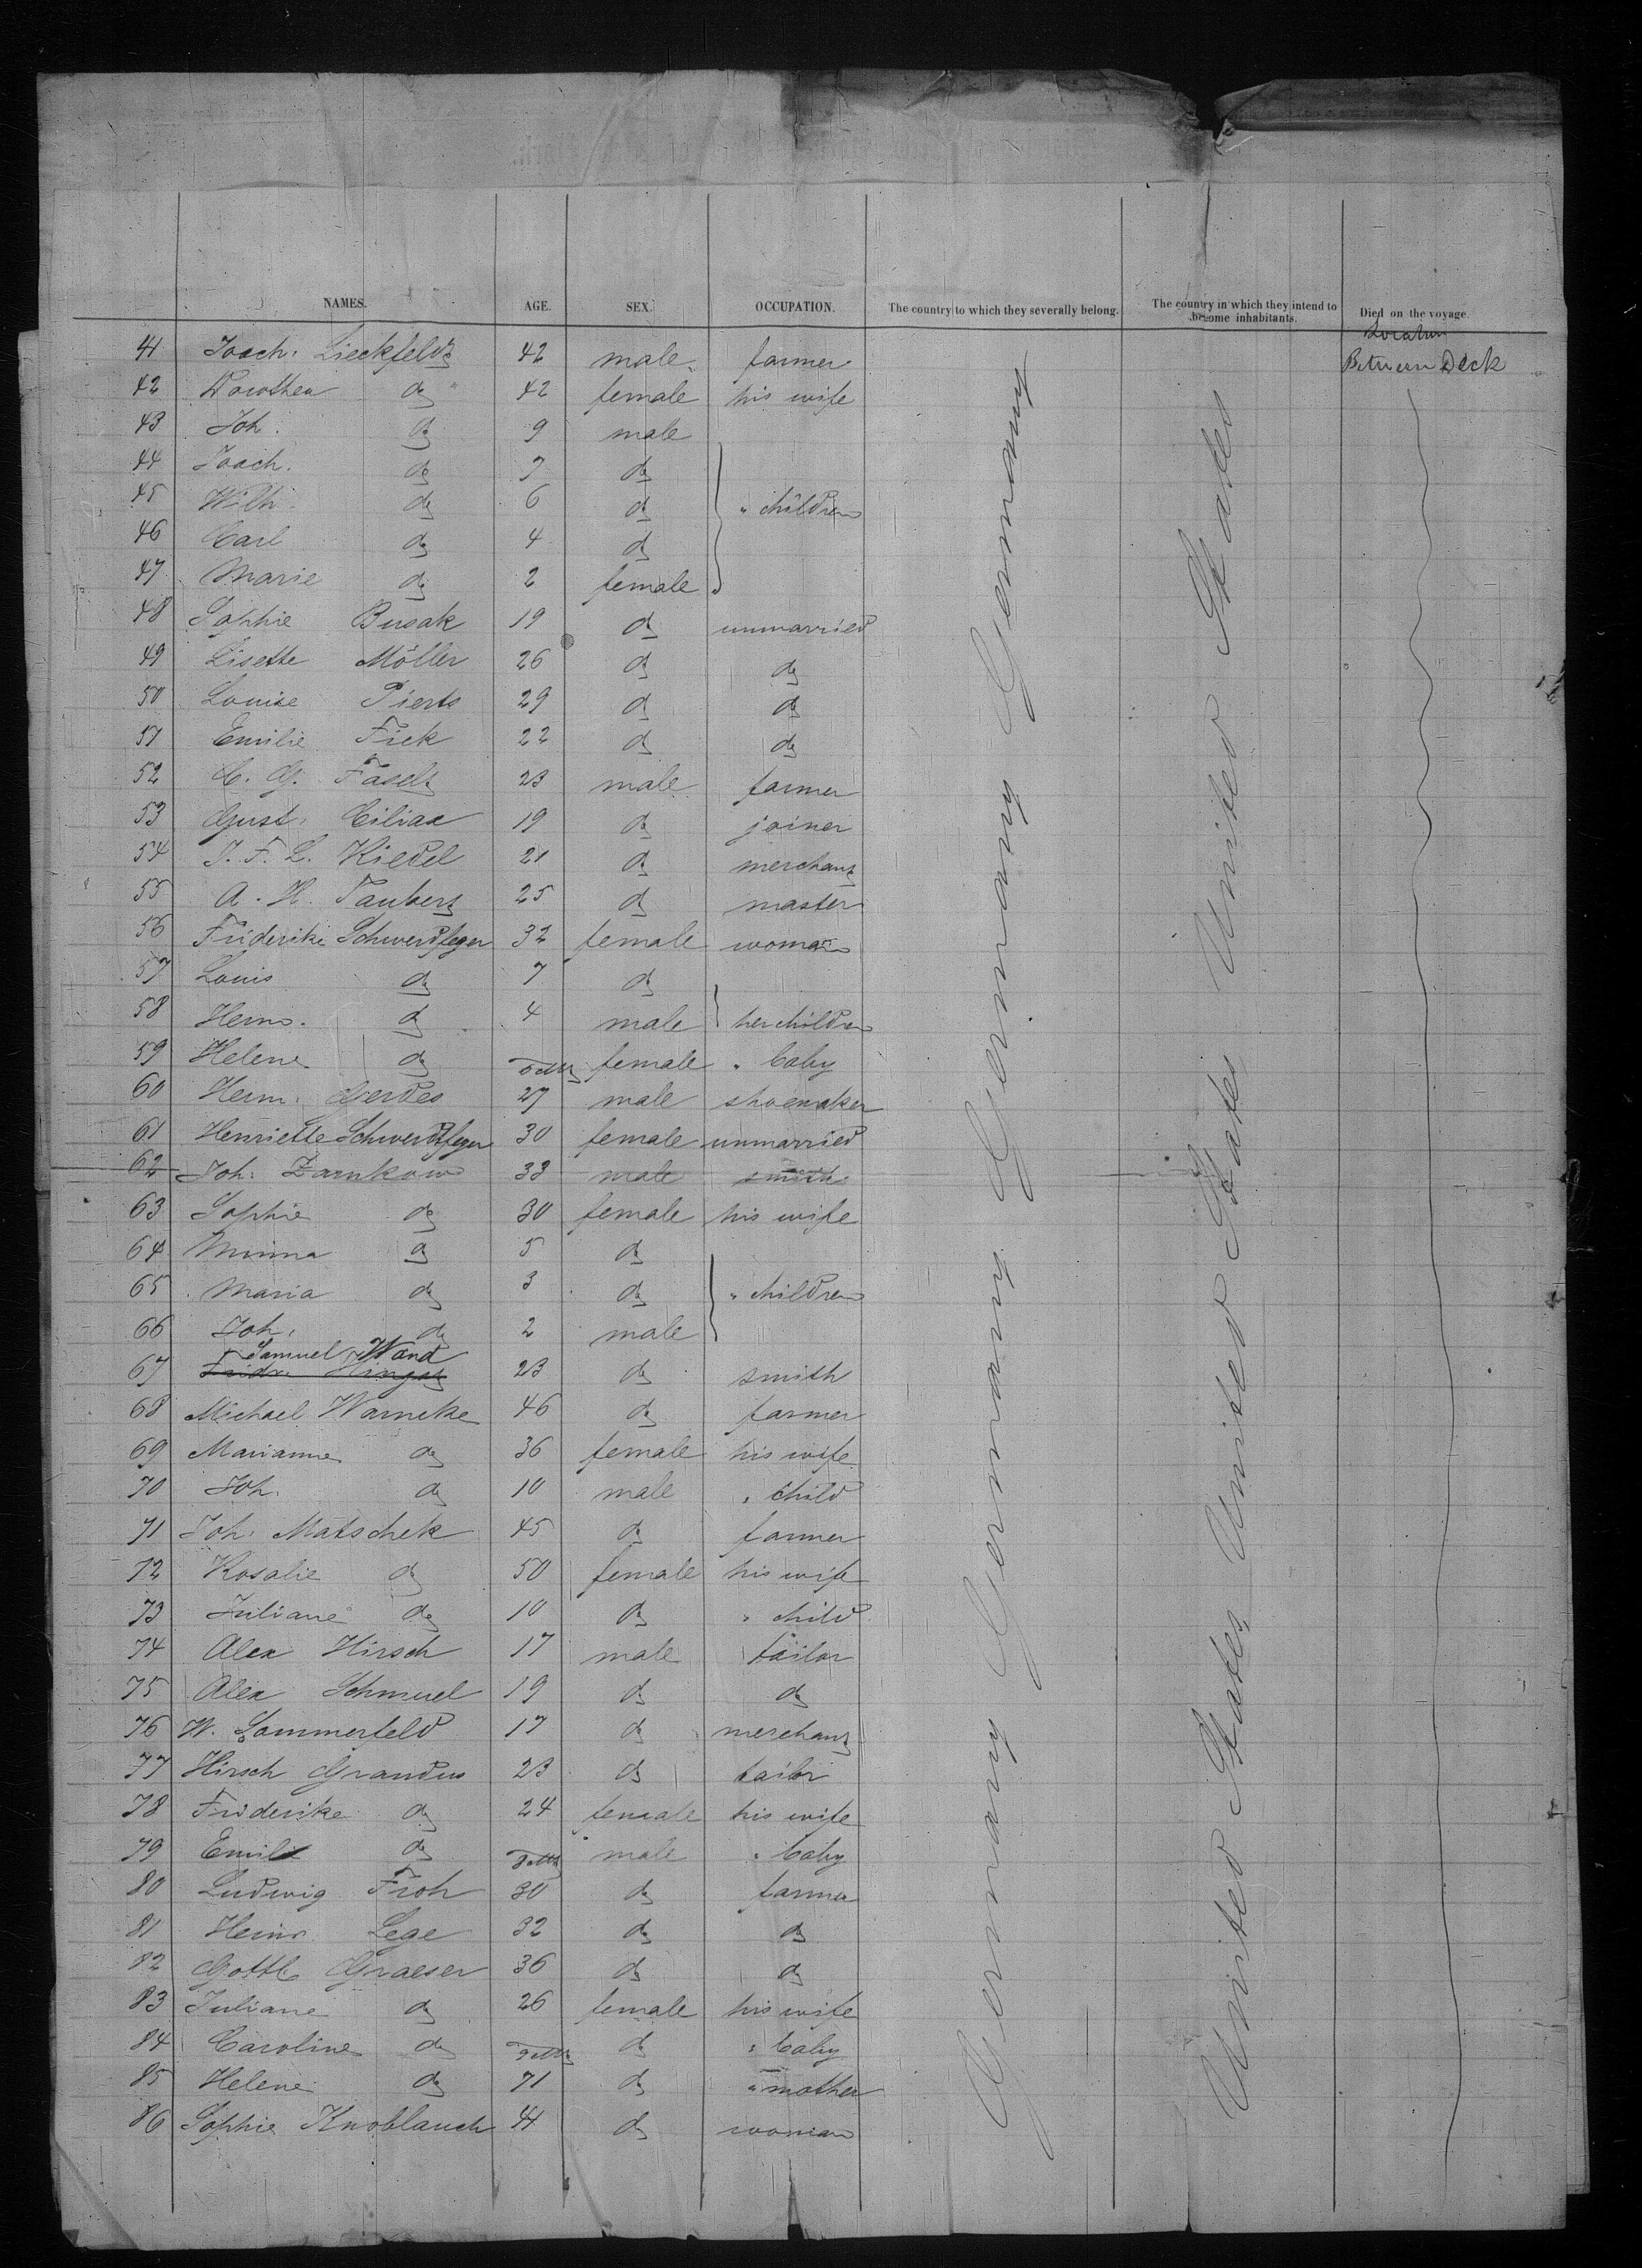 NAMES. AGE. SEX. OCCUPATION. The country to which they severally belong. The country in which they intend to become inhabitants. Died on the voyage.
Location
41 Joach. Lieckfeldt 42 male farmer Between Deck
42 Dorothea do " 42 female his wife
43 Joh. do 9 male
44 Joach. do 7 do
45 Wilh. do 6 do " children
46 Carl do 4 do
47 Marie do 2 female
48 Sophie Busak 19 do unmarried
49 Lisette Möller 26 do do
50 Louise Pierts 29 do do
51 Emilie Fick 22 do do
52 C. G. Faselt 23 male farmer
53 Gust. Ciliax 19 do joiner
54 J. F. L. Kiedel 21 do merchant
55 A. H. Taubert 25 do master
56 Friderike Schwerdtfeger 32 female woman
57 Louis do 7 do
58 Heinr. do 4 male her children
59 Helene do female " baby
60 Herm. Gerdes 27 male shoemaker
61 Henriette Schwerdtfeger 30 female unmarried
62 Joh. Zarnkow 33 male smith
63 Sophie do 30 female his wife
64 Minna do 5 do
65 Maria do 3 do " children
66 Joh. do 2 male
Samuel Wand
67 Fridr. 23 do smith
68 Michael Warneke 46 do farmer
69 Marianne do 36 female his wife
70 Joh. do 10 male " child
71 Joh. Matschek 45 do farmer
72 Rosalie do 50 female his wife
73 Juliane do 10 do " child
74 Alex Hirsch 17 male tailor
75 Alex Schmuel 19 do do
76 W. Sommerfeld 17 do merchant
77 Hirsch Grandus 23 do tailor
78 Friderike do 24 female his wife
79 Emil do male " baby
80 Ludwig Froh 30 do farmer
81 Heinr. Lege 32 do do
82 Gottl. Graeser 36 do do
83 Juliane do 26 female his wife
84 Caroline do do " baby
85 Helene do 71 do " mother
86 Sophie Knoblauch 41 do woman
Germany Germany Germany Germany
United States United States United States